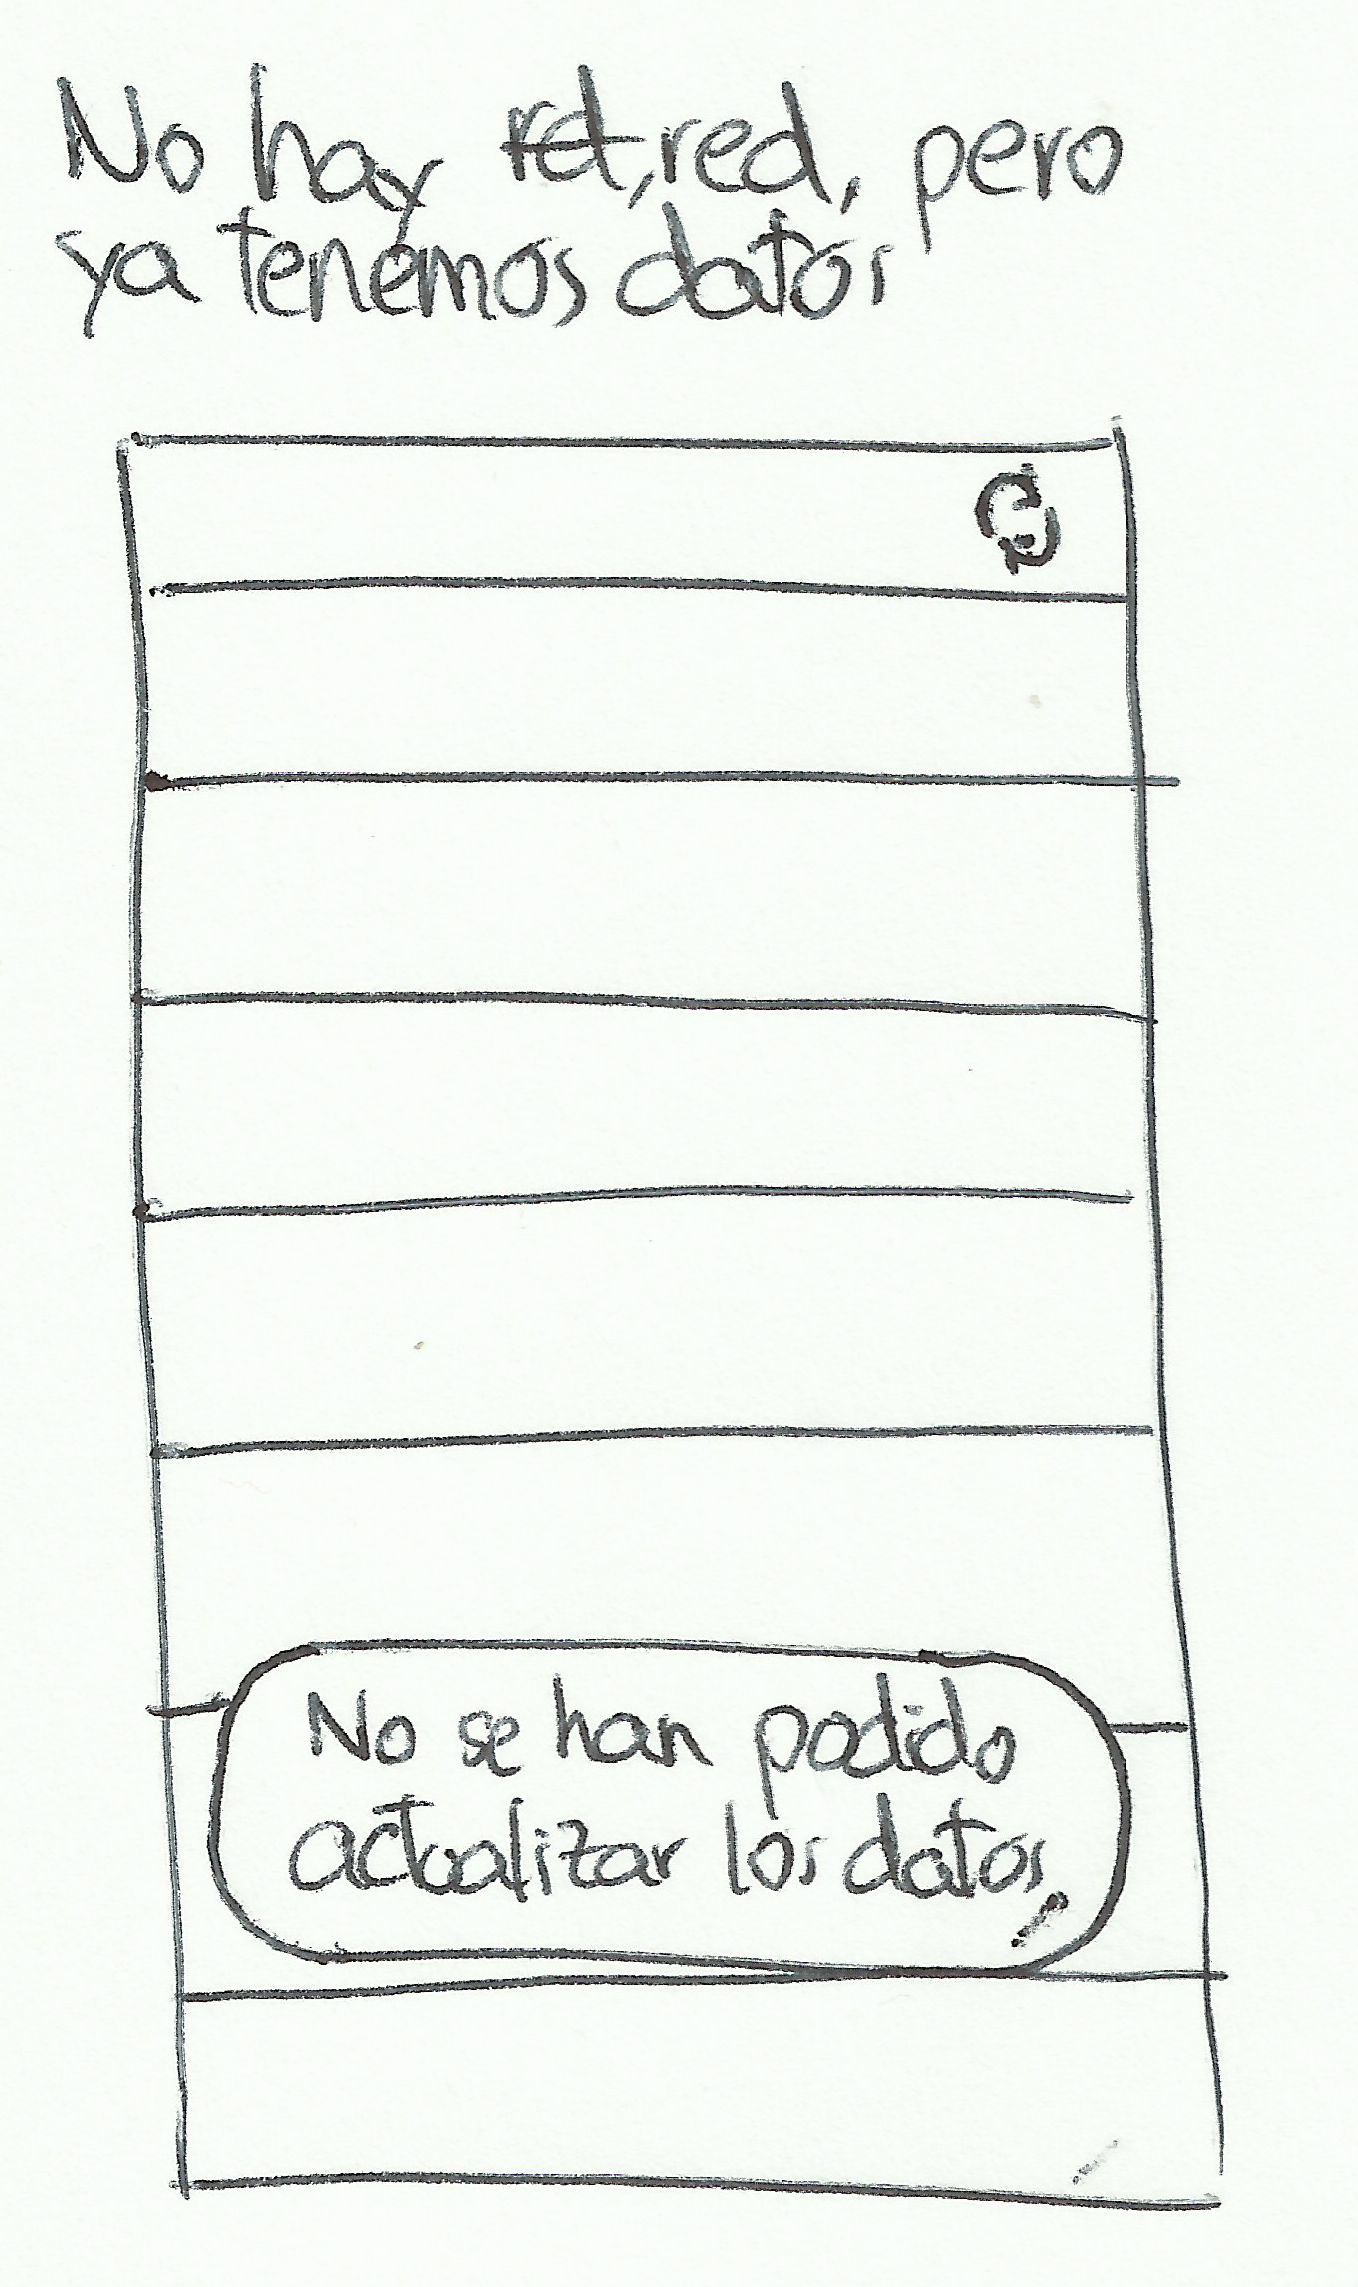 No hay ret, red, pero
ya tenemos datos
No se han podido
actualizar los datos